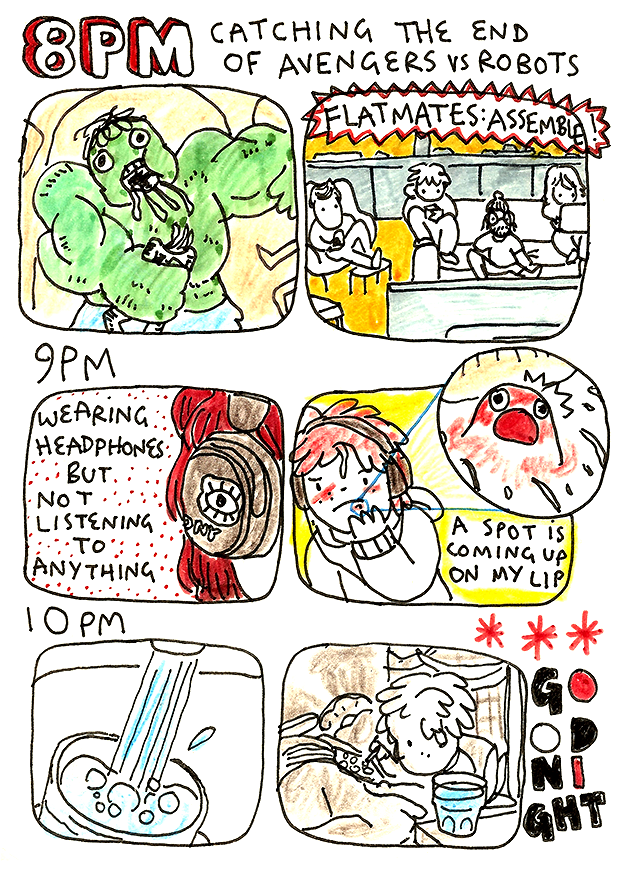 8PM
CATCHING THE END
OF AVENGERS VS ROBOTS
FLATMATES: ASSEMBLE!
9PM
WEARING
HEADPHONES
BUT
NOT
LISTENING
TO
ANYTHING
A SPOT IS
COMING UP
ON MY LIP
10PM
GO
OD
NI
GHT